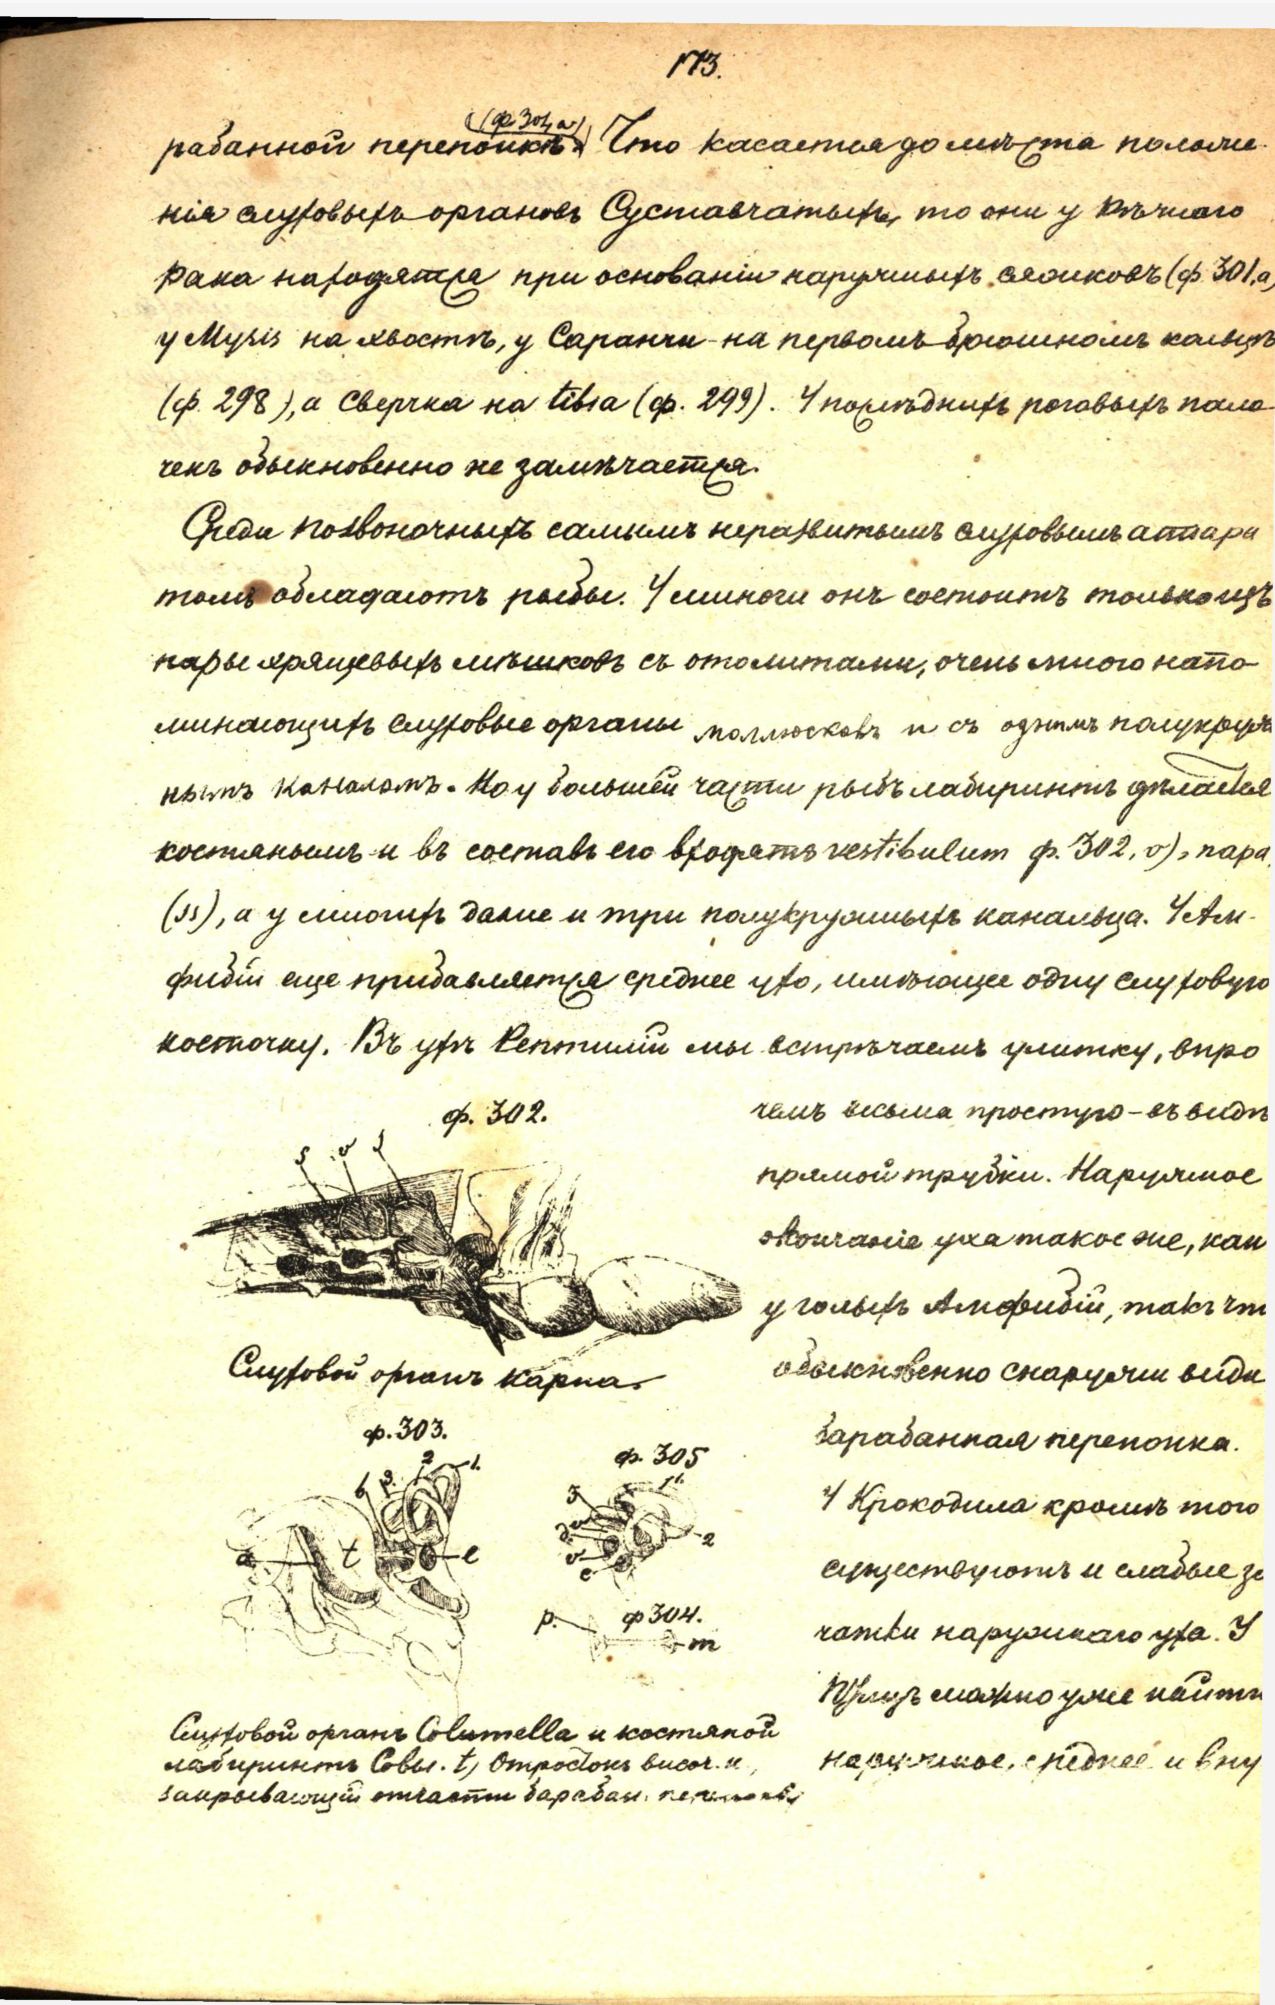 173.
(ф. 301, а)
рабанной перепонкѣ. Что касается до мѣста положе-
нія слуховыхъ органовъ Суставчатыхъ, то они у Рѣчнаго
Рака находятся при основаніи наружныхъ сяжковъ (ф. 301, а)
у Mysis на хвостѣ, у Саранчи - на первомъ брюшномъ кольцѣ
(ф. 298), а Сверчка на tibia (ф. 299). У послѣднихъ роговыхъ пало-
чекъ обыкновенно не замѣчается.
Среди позвоночныхъ самымъ неразвитымъ слуховымъ аппара
томъ обладаютъ рыбы. У миноги онъ состоитъ только изъ
пары хрящевыхъ мѣшковъ съ отолитами, очень много напо-
минающихъ слуховые органы моллюсковъ и съ однимъ полукруж
нымъ каналомъ. Но у большей части рыбъ лабиринтъ дѣлается
костянымъ и въ составъ его входятъ vestibulum ф. 302, v), пара
(ss), а у многихъ далѣе и три полукружныхъ канальца. У Ам-
фибій еще прибавляется среднее ухо, имѣющее одну слуховую
косточку. Въ ухѣ Рептилій мы встрѣчаемъ улитку, впро
чемъ весьма простую - въ видѣ
прямой трубки. Наружное
окончаніе уха такое же, как
у голыхъ Амфибій, такъ чт
обыкновенно снаружи видн
барабанная перепонка.
У Крокодила кромѣ того
существуютъ и слабые за
чатки наружнаго уха. У
Птицъ можно уже найти
наружное, среднее и вну
ф. 302.
s v s
Слуховой органъ карпа.
ф. 303.
6 3. 2 1.
a t e
ф. 305
3 1.
a 2
v
c
ф 304.
p. m
Слуховой органъ Columella и костяной
лабиринтъ Совы. t, Отростокъ височ. к,
закрывающій отчасти барабан. перепонку